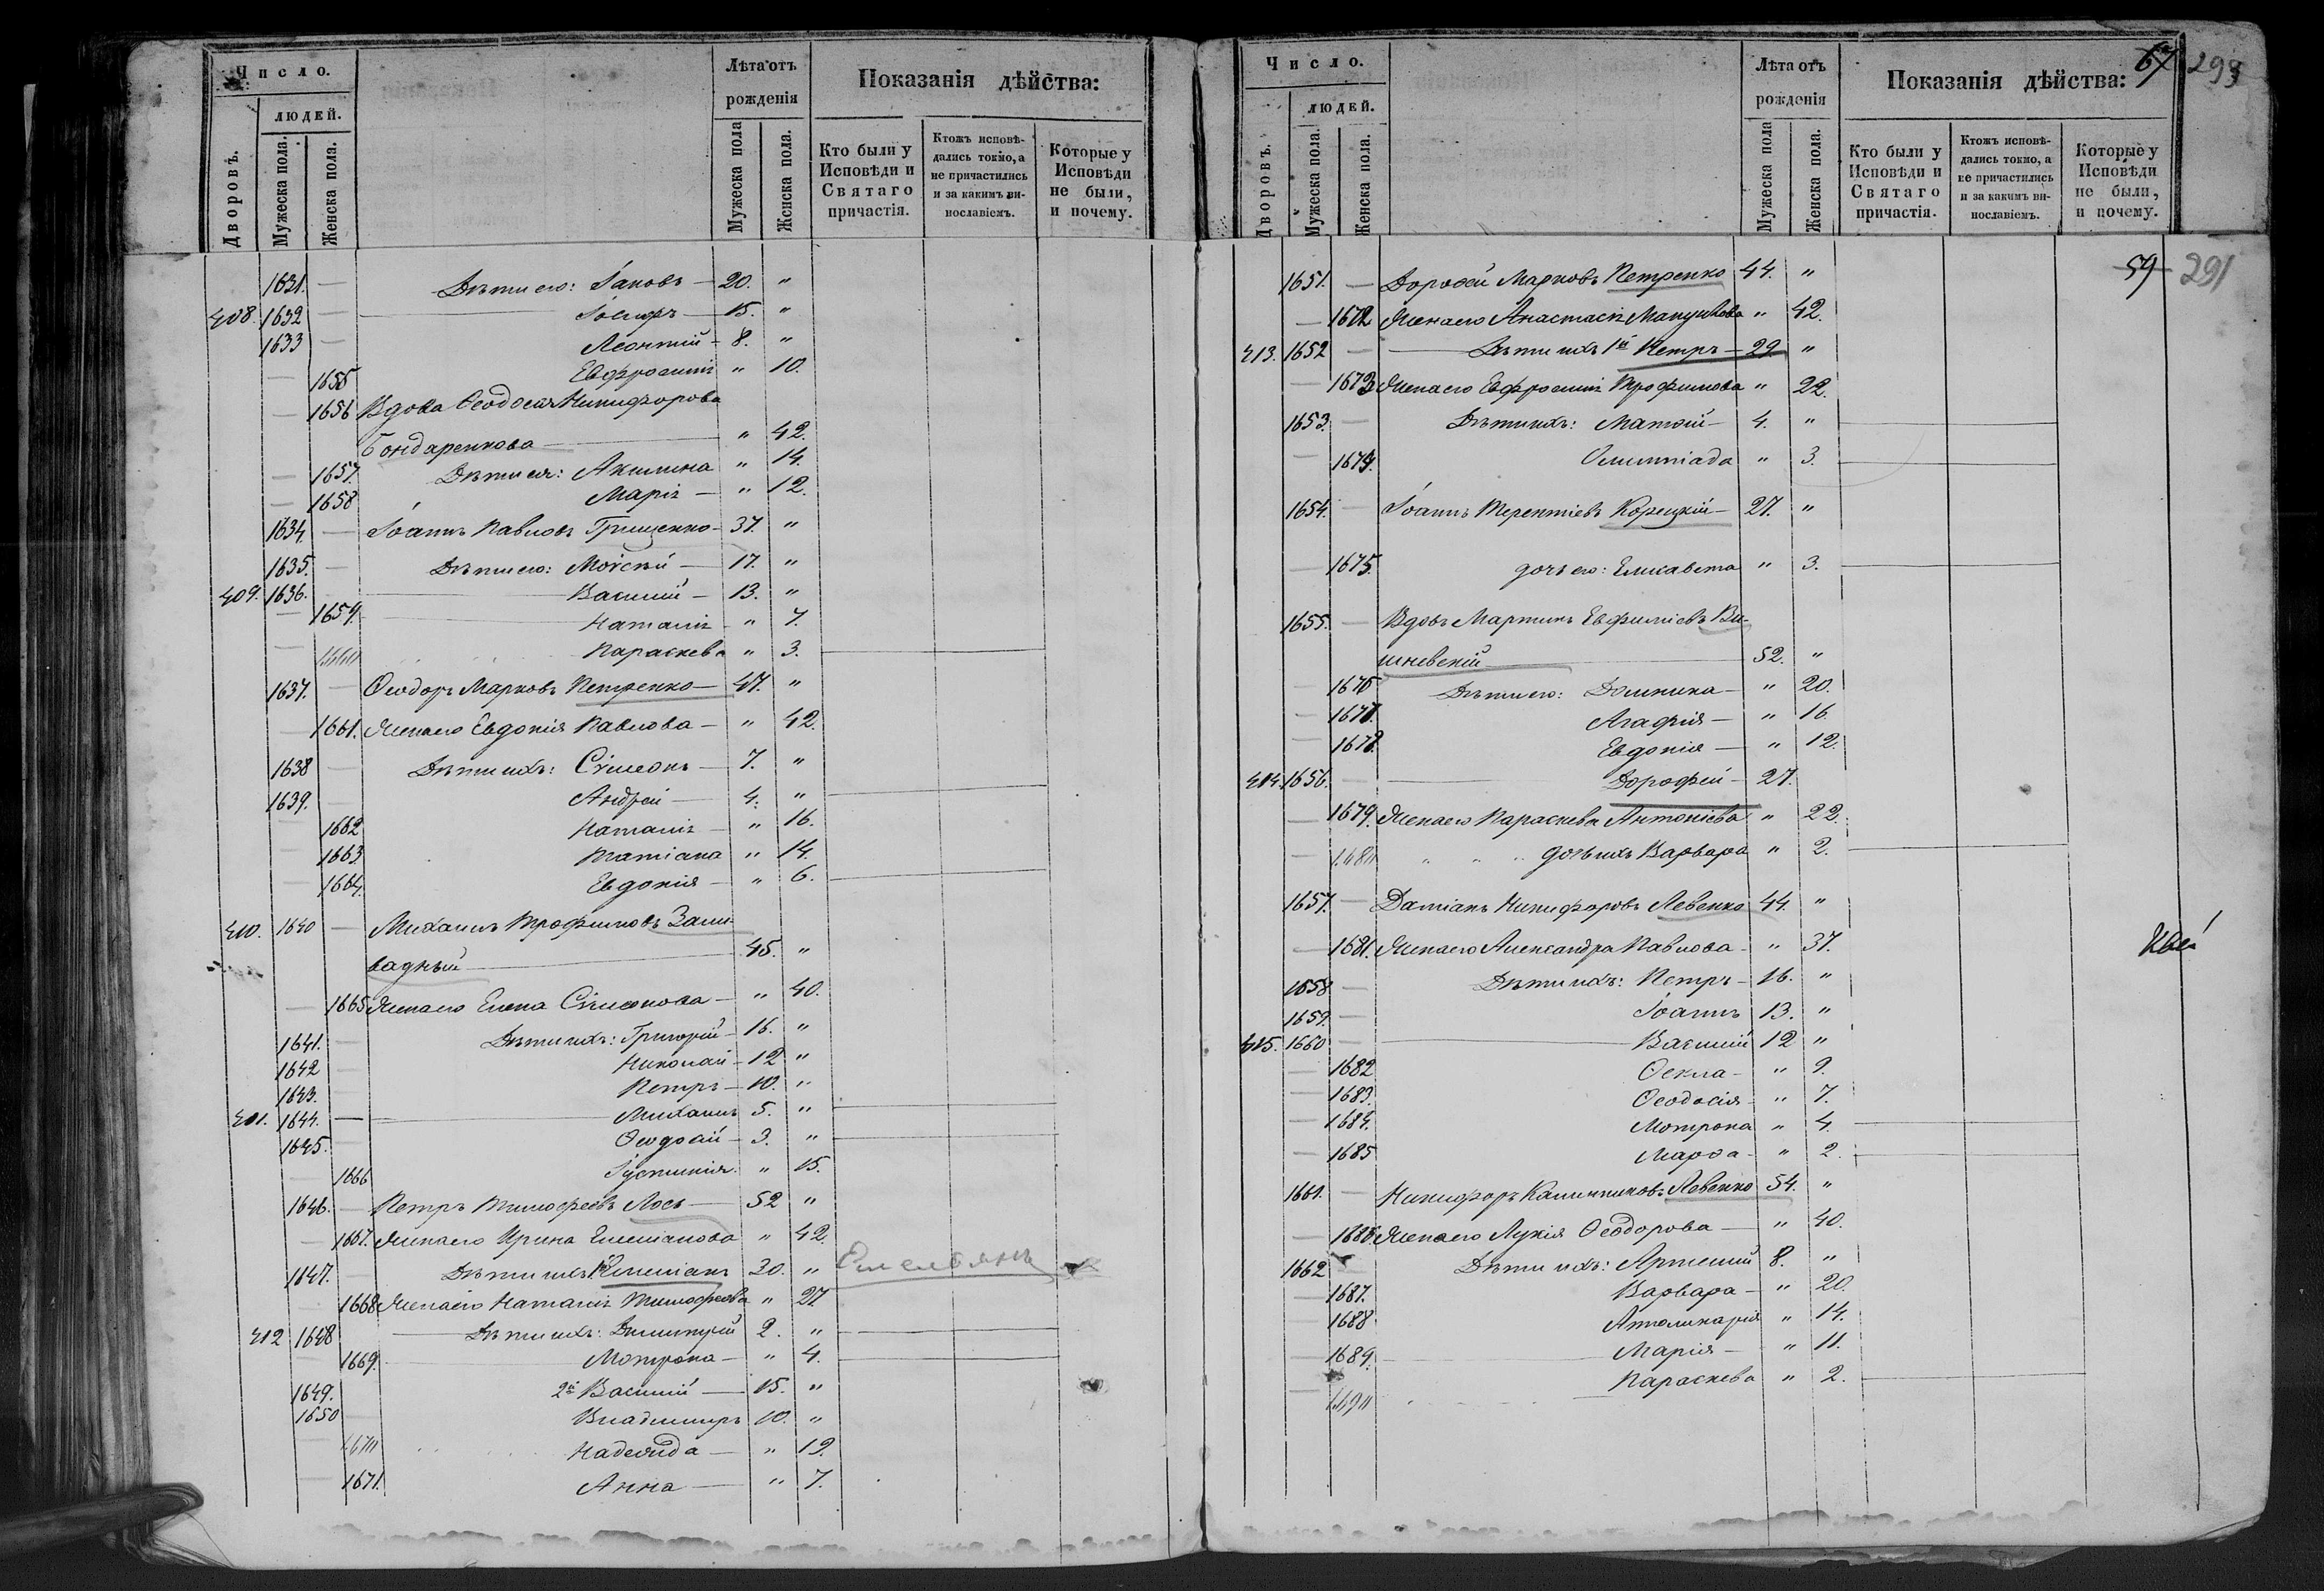 Число.
людей.
Дворовъ.
Мужеска пола.
Женска пола.
Лѣта отъ рожденія
Мужеска пола
Женска пола.
Показанія дѣйства:
Кто были у Исповѣди и Святаго причастія.
Ктожъ исповѣдались токмо, а не причастились и за какимъ винославіемъ.
Которые у Исповѣди не были, и почему.
1631. — Дѣти его: Іаковъ — 20. "
408. 1632 — Іосифъ — 15. "
1633 — Леонтій — 8. "
— 1655 Евфросинія " 10.
— 1656 Вдова Ѳеодосія Никифорова
Бондаренкова — " 42.
— 1657. Дѣти ея: Акилина " 14.
— 1658 Марія — " 12.
1634. — Іоаннъ Павловъ Грищенко — 37. "
1635. — Дѣти его: Моѵсей — 17. "
409. 1636. — Василій — 13. "
— 1659. Наталія — " 7.
— 1660 Параскева " 3.
1637. — Ѳеодоръ Марковъ Петренко — 47. "
— 1661. Жена его Евдокія Павлова — " 42.
1638 — Дѣти ихъ: Сѵмеонъ — 7. "
1639. — Андрей — 4. "
— 1662 Наталія — " 16.
— 1663 Татіана " 14.
— 1664. Евдокія — " 6.
410. 1640 — Михаилъ Трофимовъ Зали-
вадный — 45. "
— 1665 Жена его Елена Сѵмеонова — " 40.
1641. — Дѣти ихъ: Григорій — 16. "
1642 — Николай — 12 "
1643. — Петръ — 10. "
401. 1644. — Михаилъ 5. "
1645. — Ѳеодосій — 3. "
— 1666 Іустинія " 15.
1646. — Петръ Тимофеевъ Лось — 52 "
— 1667. Жена его Ирина Емеліанова " 42.
1647. — Дѣти ихъ 1й Емеліанъ 30. " Емельянъ
— 1668 Жена его Наталія Тимофеева " 27
412 1648 — Дѣти ихъ: Димитрій 2. "
— 1669. Мотрона — " 4.
1649. 2й Василій — 15. "
1650 — Владимиръ 10. "
— 1670 Надежда — " 19.
— 1671. Анна — " 7.
Число.
людей.
Дворовъ.
Мужеска пола.
Женска пола.
Лѣта отъ рожденія
Мужеска пола
Женска пола.
Показанія дѣйства:
67 293
Кто были у Исповѣди и Святаго причастія.
Ктожъ исповѣдались токмо, а не причастились и за какимъ винославіемъ.
Которые у Исповѣди не были, и почему.
59 291
1651. — Дорофей Марковъ Петренко 44. "
— 1672 Жена его Анастасія " 42.
413. 1652 — Дѣти ихъ 1й Петръ — 29. "
— 1673 Жена его Евфросинія Трофимова " 22.
1653. — Дѣти ихъ: Матѳій — 4. "
— 1674. Олимпіада " 3.
1654. — Іоаннъ Терентіевъ Корецкій — 27. "
— 1675. дочь его: Елисавета " 3.
1655. — Вдовъ Мартинъ Евфиміевъ Ви-
шневскій — 52. "
— 1676 Дѣти его: Домникa — " 20.
— 1677. Агафія — " 16
— 1678. Евдокія — " 12.
414. 1656. — Дорофей — 27.
— 1679. Жена его Параскева Антоніева " 22.
— 1680 дочь ихъ Варвара " 2.
1657. — Даміанъ Никифоровъ Левенко 44. "
— 1681. Жена его Александра Павлова — " 37.
1658 — Дѣти ихъ: Петръ — 16. "
1659. — Іоаннъ 13. "
415. 1660 — Василій 12 "
— 1682 Ѳекла — " 9.
— 1683. Ѳеодосія — " 7.
— 1684. Мотрона " 4
— 1685 Марѳа — " 2.
1661. — Никифоръ Калинниковъ Левенко 54. "
— 1686 Жена его Лукія Ѳеодорова — " 40.
1662 Дѣти ихъ: Артемій 8. "
— 1687. Варвара — " 20.
— 1688. Апполинарія " 14.
— 1689. Марія — " 11.
— 1690 Параскева " 2.